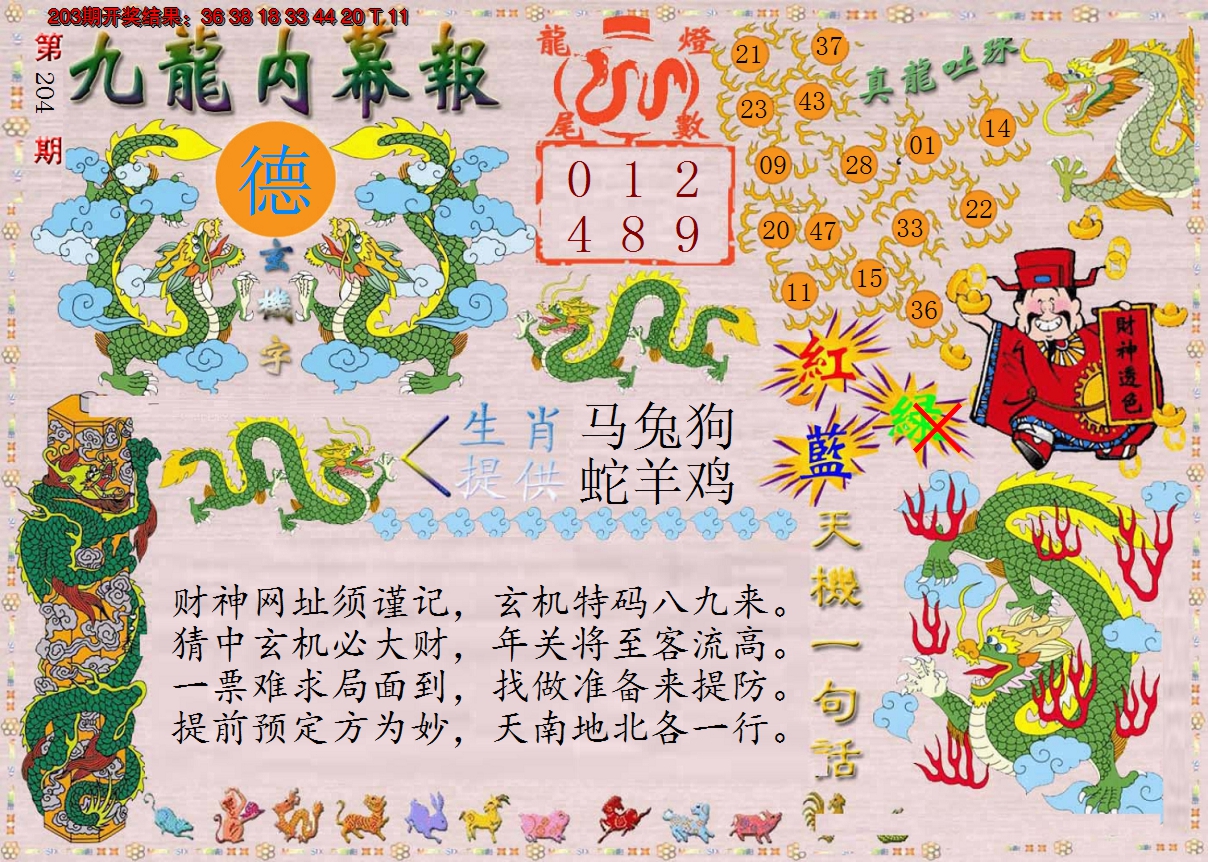 203期开奖结果：36 38 18 33 44 20 T 11
第204期
九龍内幕報
德
玄機字
龍燈尾數
0 1 2
4 8 9
真龍吐珠
21 37
23 43
09 28 01 14
20 47 33 22
11 15 36
財神透色
紅
綠
藍
生肖 马兔狗
提供 蛇羊鸡
天機一句話
财神网址须谨记，玄机特码八九来。
猜中玄机必大财，年关将至客流高。
一票难求局面到，找做准备来提防。
提前预定方为妙，天南地北各一行。